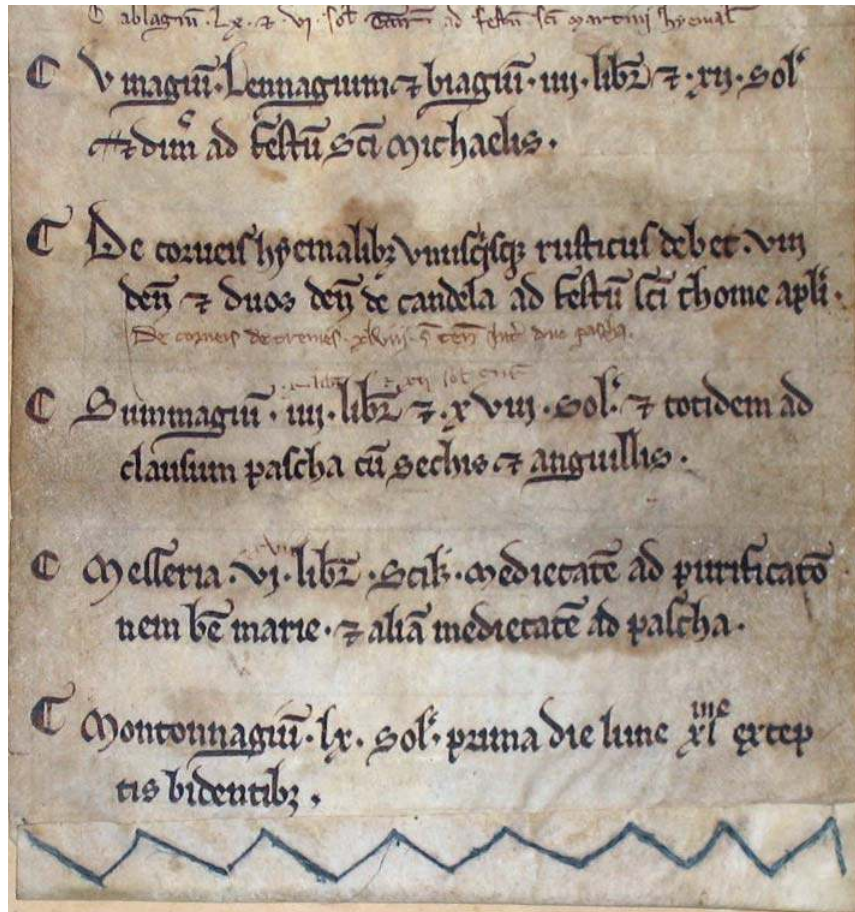 ablagiũ · lx · ⁊ · vi · sol ad festũ sci martini hyemal
Vinagiũ · Lennagium ⁊ biagiũ · iiij · libr̃ ⁊ · xij · sol
⁊ dim̃ ad festũ sc̃i michaelis ·
De corueis hyemalibꝫ vnusq̇sqꝫ rusticus debet · viii
deñ ⁊ duos deñ de candela ad festũ sc̃i thome apl̃i ·
De corueis de tremes · xlviii · inť duo pascha ·
⁊ xii sol
Summagiũ · iiij · libr̃ ⁊ · xviij · sol · ⁊ totidem ad
clausum pascha cũ sechis ⁊ anguillis ·
Messeria · vj · libr̃ · Scil · medietatẽ ad purificatõ
nem bẽ marie · ⁊ aliã medietatẽ ad pascha ·
Montonnagiũ · lx · sol · prima die lune xlᵐᵉ excep
tis bidentibꝫ ·